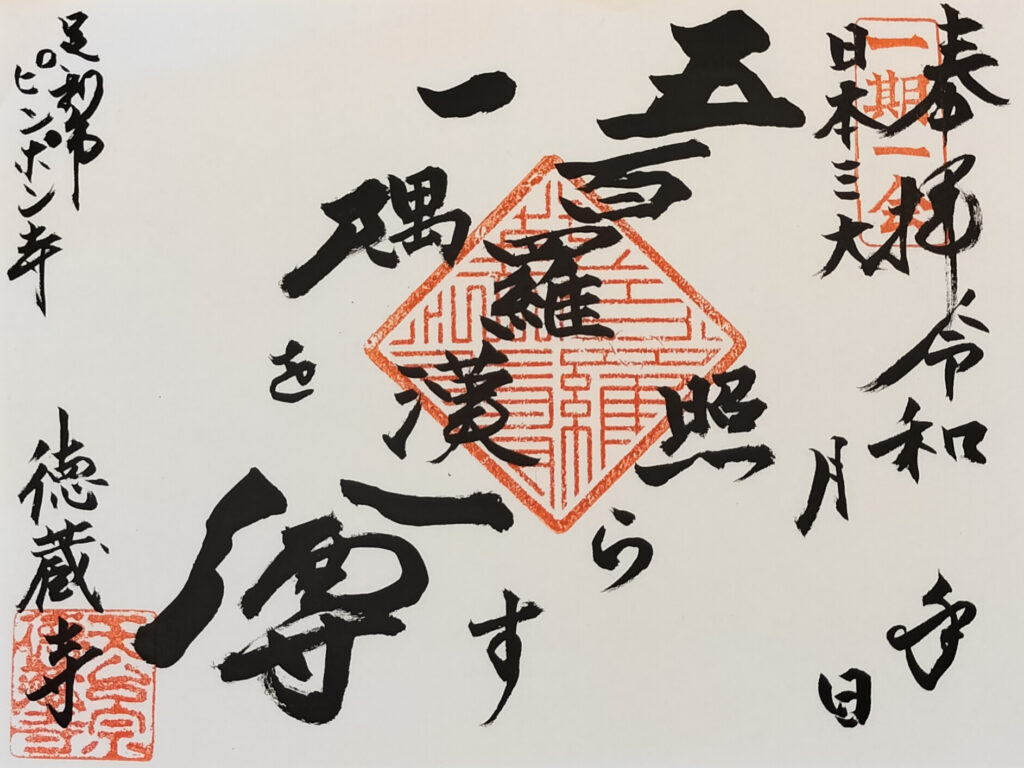 奉拝 令和 年
月 日
一期一会
日本三大
五百羅漢
一隅を
照らす
足利市
ピンポン寺
徳蔵寺
天台宗
徳蔵寺